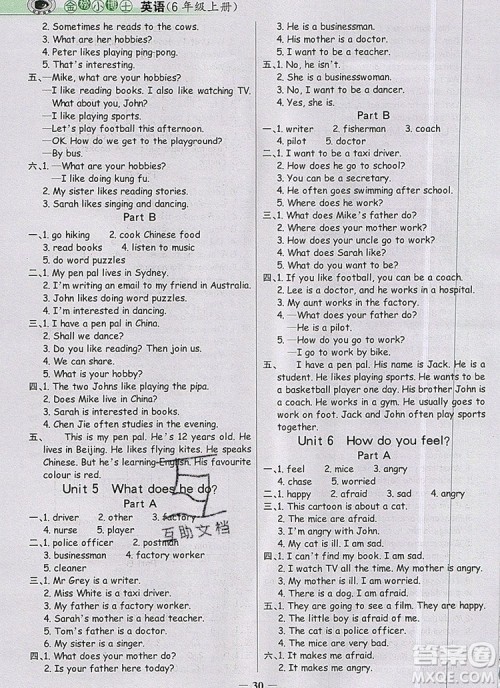 金榜小博士 英语(6年级上册)
2. Sometimes he reads to the cows.
3. What are your hobbies?
4. Peter likes playing ping-pong.
5. That's interesting.
五、—Mike, what are your hobbies?
—I like reading books. I also like watching TV.
What about you, John?
—Let's play football this afternoon.
—OK. How do we get to the playground?
—By bus.
六、1. —What are your hobbies?
—I like doing kung fu.
2. My sister likes reading stories.
3. Sarah likes singing and dancing.
Part B
一、1. go hiking 2. cook Chinese food
3. read books 4. listen to music
5. do word puzzles
二、1. My pen pal lives in Sydney.
2. I'm writing an email to my friend in Australia.
3. John likes doing word puzzles.
4. I'm interested in dancing.
三、1. I have a pen pal in China.
2. Shall we dance?
3. Do you like reading? Then join us.
4. We can share.
5. What is your hobby?
四、1. The two Johns like playing the pipa.
2. Does Mike live in China?
3. Sarah is interested in books.
4. Chen Jie often studies in the evening.
五、 This is my pen pal. He is 12 years old. He
lives in Beijing. He likes flying kites. He speaks
Chinese. But he's learning English. His favourite
colour is red.
Unit 5 What does he do?
Part A
一、1. driver 2. other 3. factory
4. nurse 5. player
二、1. police officer 2. postman
3. businessman 4. factory worker
5. cleaner
三、1. Mr Grey is a writer.
2. Miss White is a taxi driver.
3. My father is a factory worker.
4. My father is a postman.
5. Tom's father is a postman.
6. My sister is a singer.
四、1. What does your mother do?
2. Is your father here today?
互助文档
3. He is a businessman.
4. His mother is a doctor.
5. I want to be a teacher.
五、1. No, he isn't.
2. She is a businesswoman.
3. No, I want to be a dancer.
4. Yes, she is.
Part B
一、1. writer 2. fisherman 3. coach
4. pilot 5. doctor
二、1. I want to be a taxi driver.
2. He is good at English.
3. You can be a secretary.
4. He often goes swimming after school.
5. Where does he work?
三、1. What does Mike's father do?
2. Where does your mother work?
3. How does your uncle go to work?
4. What does Sarah like?
5. Where does he live?
四、1. If you like football, you can be a coach.
2. Lee is a doctor. He works in a hospital.
3. My aunt works in the factory.
4. —What does your father do?
—He is a pilot.
5. —How do you go to work?
—I go to work by bike.
五、 I have a pen pal. His name is Jack. He is a
student. He likes playing sports. He wants to be a
basketball player one day. His brother John is a
coach. He works in a gym. He works very hard.
Jack and John often play sports together.
Unit 6 How do you feel?
Part A
一、1. feel 2. mice 3. angry
4. chase 5. sick
二、1. happy 2. afraid 3. sad 4. angry
三、1. This cartoon is about a cat.
2. The mice are afraid.
3. I'm angry with him.
4. My cat is ill. I am sad.
四、1. I can't find my book. I am sad.
2. I watched TV all day. My mother is angry.
3. My mother is ill. I am worried.
4. There is a dog. I am afraid.
五、1. They are going to see a film. They are happy.
2. The mice are afraid of the cat.
3. The cat is a police officer.
4. What is this cartoon about?
5. My father is ill. I am worried.
六、1. It makes me afraid.
2. It makes me angry.
— 30 —
答案圈
MXQE.COM